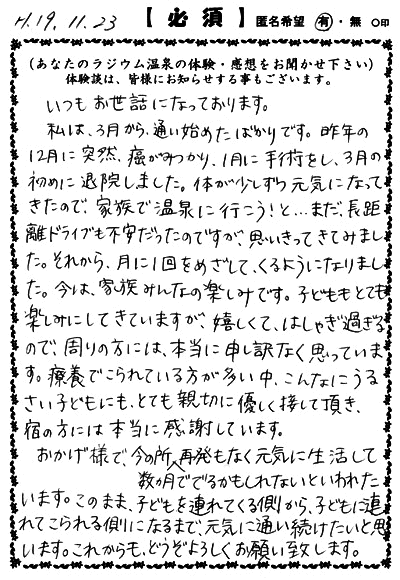 H.19.11.23 【必須】 匿名希望 有・無 ○印
(あなたのラジウム温泉の体験・感想をお聞かせ下さい)
体験談は、皆様にお知らせする事もございます。
いつもお世話になっております。
私は、3月から、通い始めたばかりです。昨年の
12月に突然、癌がみつかり、1月に手術をし、3月の
初めに退院しました。体が少しずつ元気になって
きたので、家族で温泉に行こう!と…まだ、長距
離ドライブも不安だったのですが、思いきってきてみまし
た。それから、月に1回をめざして、くるようになりまし
た。今は、家族みんなの楽しみです。子どももとても
楽しみにしてきていますが、嬉しくて、はしゃぎ過ぎる
ので、周りの方には、本当に申し訳なく思っていま
す。療養でこられている方が多い中、こんなにうる
さい子どもにも、とても親切に優しく接して頂き、
宿の方には本当に感謝しています。
おかげ様で、今の所、再発もなく元気に生活して
数か月ででるかもしれないといわれた
います。このまま、子どもを連れてくる側から、子どもに連
れてこられる側になるまで、元気に通い続けたいと思
います。これからも、どうぞよろしくお願い致します。